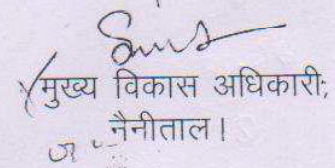 मुख्य विकास अधिकारी,
नैनीताल।